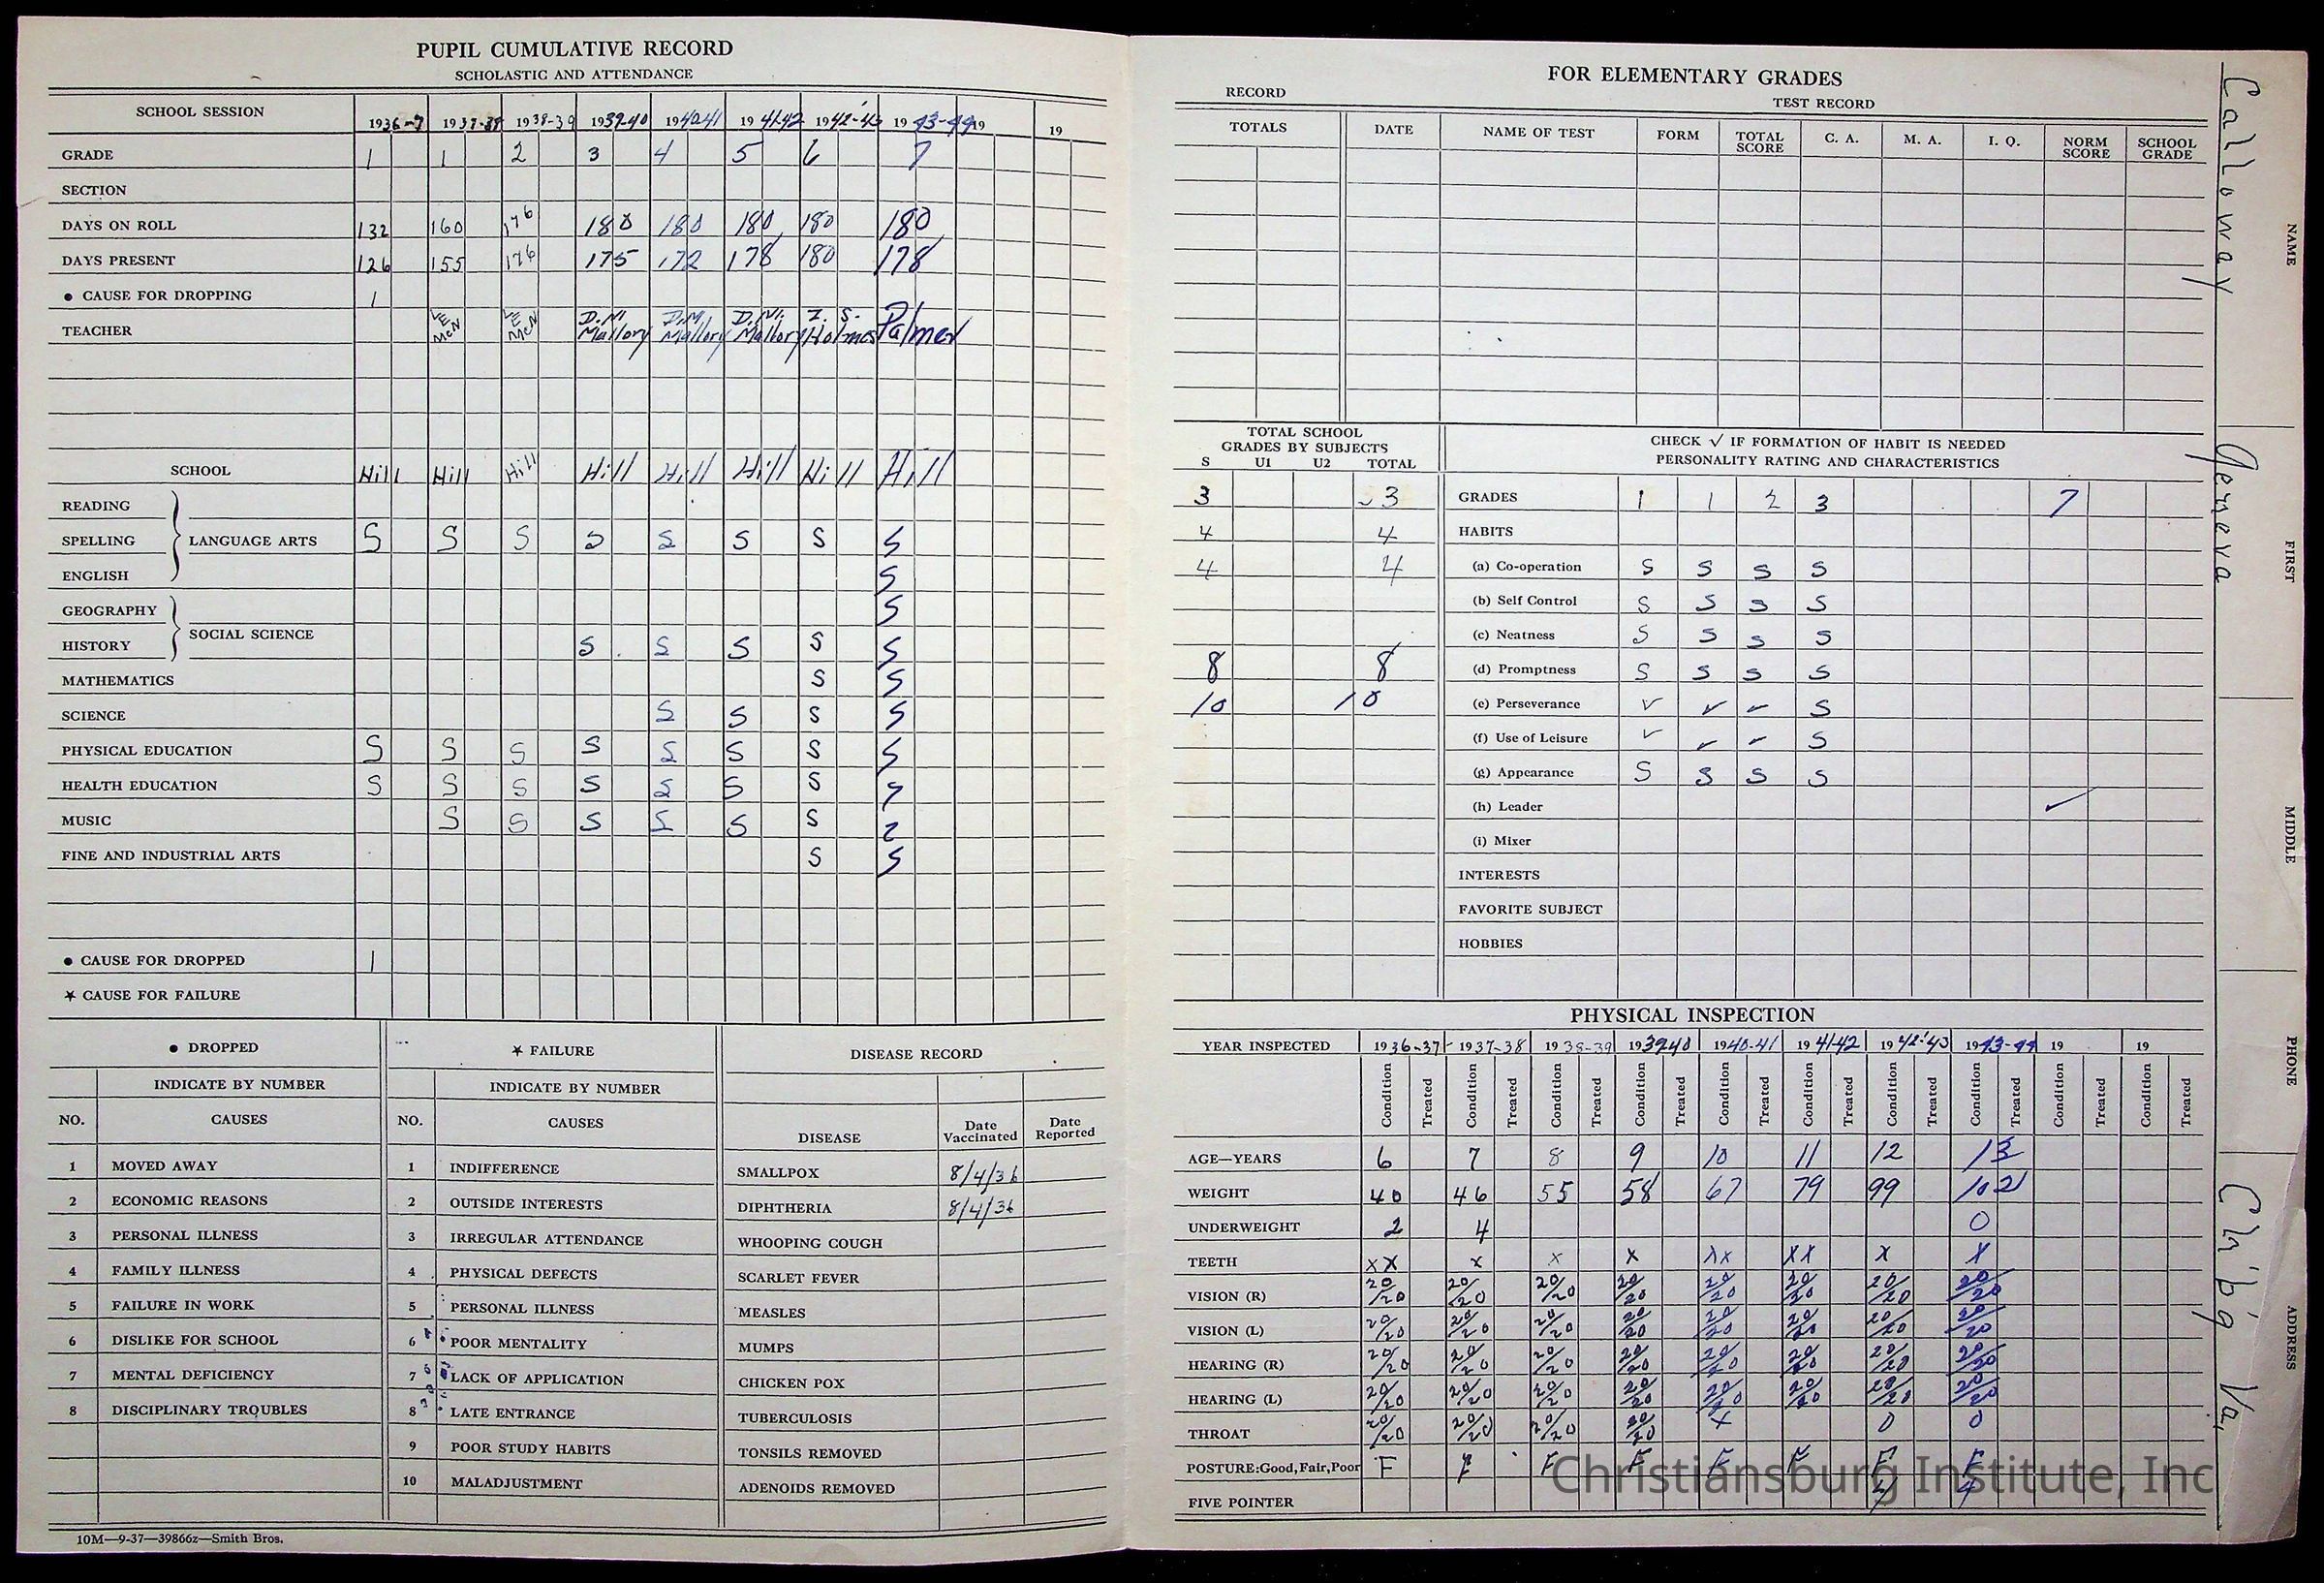 PUPIL CUMULATIVE RECORD
SCHOLASTIC AND ATTENDANCE
SCHOOL SESSION 1936-7 1937-38 1938-39 1939-40 1940-41 1941-42 1942-43 1943-44 19 19
GRADE 1 1 2 3 4 5 6 7
SECTION
DAYS ON ROLL 132 160 176 180 180 180 180 180
DAYS PRESENT 126 155 176 175 172 178 180 178
● CAUSE FOR DROPPING 1
TEACHER L E McN L E McN D.M. Mallory D.M. Mallory D.M. Mallory Z. S. Holmes Palmer
SCHOOL Hill Hill Hill Hill Hill Hill Hill Hill
READING
SPELLING LANGUAGE ARTS S S S S S S S S
ENGLISH S
GEOGRAPHY S
HISTORY SOCIAL SCIENCE S S S S S
MATHEMATICS S S
SCIENCE S S S S
PHYSICAL EDUCATION S S S S S S S S
HEALTH EDUCATION S S S S S S S S
MUSIC S S S S S S S
FINE AND INDUSTRIAL ARTS S S
● CAUSE FOR DROPPED 1
★ CAUSE FOR FAILURE
● DROPPED
INDICATE BY NUMBER
NO. CAUSES
1 MOVED AWAY
2 ECONOMIC REASONS
3 PERSONAL ILLNESS
4 FAMILY ILLNESS
5 FAILURE IN WORK
6 DISLIKE FOR SCHOOL
7 MENTAL DEFICIENCY
8 DISCIPLINARY TROUBLES
★ FAILURE
INDICATE BY NUMBER
NO. CAUSES
1 INDIFFERENCE
2 OUTSIDE INTERESTS
3 IRREGULAR ATTENDANCE
4 PHYSICAL DEFECTS
5 PERSONAL ILLNESS
6 POOR MENTALITY
7 LACK OF APPLICATION
8 LATE ENTRANCE
9 POOR STUDY HABITS
10 MALADJUSTMENT
DISEASE RECORD
DISEASE Date Vaccinated Date Reported
SMALLPOX 8/4/36
DIPHTHERIA 8/4/36
WHOOPING COUGH
SCARLET FEVER
MEASLES
MUMPS
CHICKEN POX
TUBERCULOSIS
TONSILS REMOVED
ADENOIDS REMOVED
10M—9-37—39866z—Smith Bros.
FOR ELEMENTARY GRADES
RECORD TEST RECORD
TOTALS DATE NAME OF TEST FORM TOTAL SCORE C. A. M. A. I. Q. NORM SCORE SCHOOL GRADE
TOTAL SCHOOL
GRADES BY SUBJECTS
S U1 U2 TOTAL
3 3
4 4
4 4
8 8
10 10
CHECK √ IF FORMATION OF HABIT IS NEEDED
PERSONALITY RATING AND CHARACTERISTICS
GRADES 1 1 2 3 7
HABITS
(a) Co-operation S S S S
(b) Self Control S S S S
(c) Neatness S S S S
(d) Promptness S S S S
(e) Perseverance ✓ ✓ ✓ S
(f) Use of Leisure ✓ ✓ ✓ S
(g) Appearance S S S S
(h) Leader ✓
(i) Mixer
INTERESTS
FAVORITE SUBJECT
HOBBIES
PHYSICAL INSPECTION
YEAR INSPECTED 1936-37 1937-38 1938-39 1939-40 1940-41 1941-42 1942-43 1943-44 19 19
Condition Treated Condition Treated Condition Treated Condition Treated Condition Treated Condition Treated Condition Treated Condition Treated Condition Treated Condition Treated
AGE—YEARS 6 7 8 9 10 11 12 13
WEIGHT 40 46 55 58 67 79 99 102
UNDERWEIGHT 2 4 0
TEETH xx x x x xx xx x x
VISION (R) 20/20 20/20 20/20 20/20 20/20 20/20 20/20 20/20
VISION (L) 20/20 20/20 20/20 20/20 20/20 20/20 20/20 20/20
HEARING (R) 20/20 20/20 20/20 20/20 20/20 20/20 20/20 20/20
HEARING (L) 20/20 20/20 20/20 20/20 20/20 20/20 20/20 20/20
THROAT 20/20 20/20 20/20 20/20 x 0 0
POSTURE:Good,Fair,Poor F F F F F F F F
FIVE POINTER 4
Christiansburg Institute, Inc
NAME Calloway
FIRST Geneva
MIDDLE
PHONE
ADDRESS Ch'b'g Va.